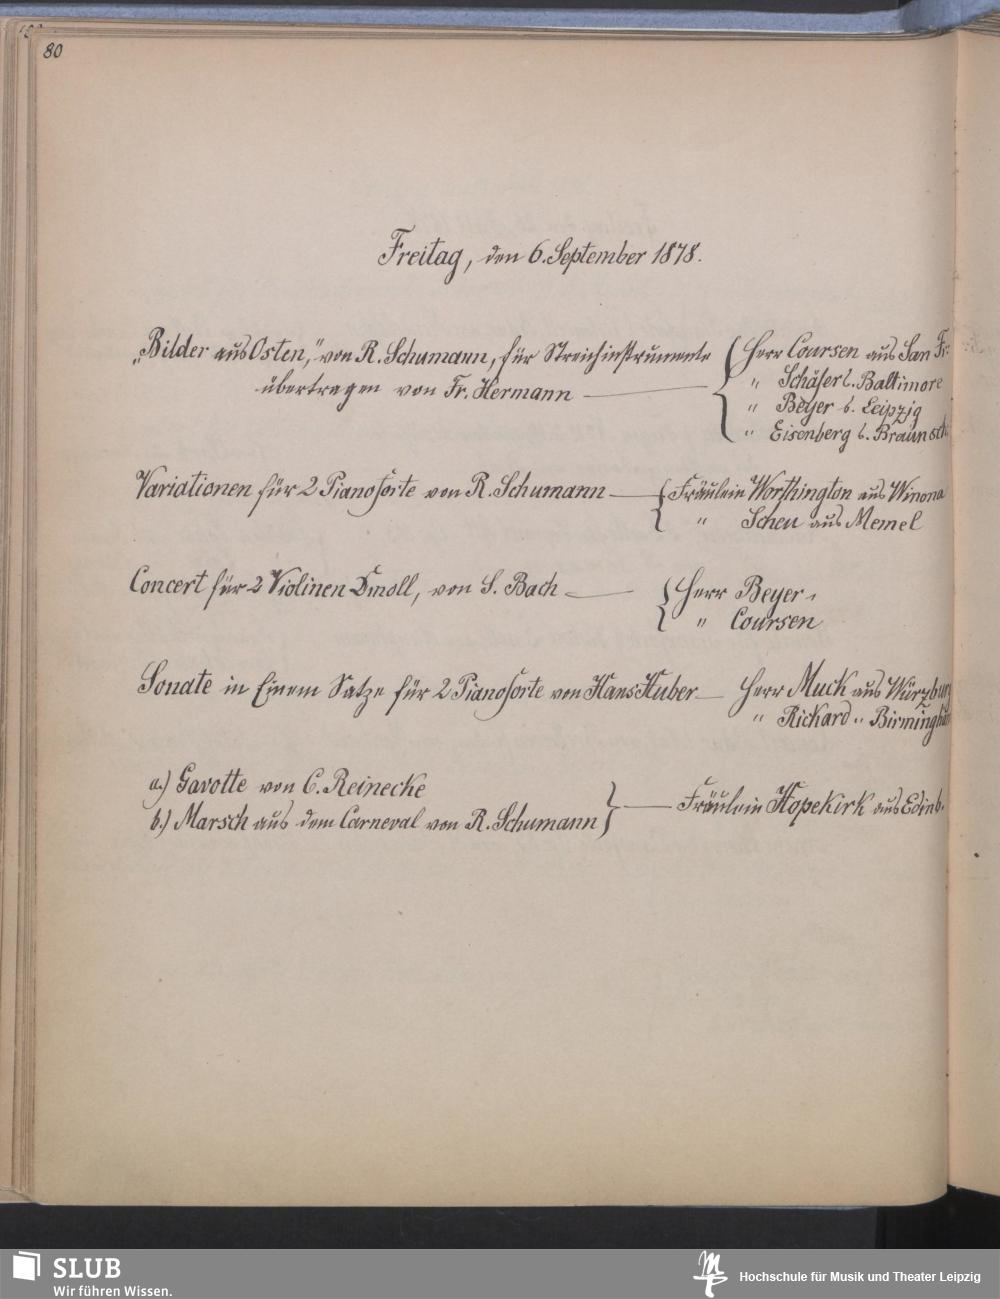 80
Freitag, den 6. September 1878.
„Bilder aus Osten," von R. Schumann, für Streichinstrumente
übertragen von Fr. Hermann
Herr Coursen aus San Fr.
" Schäfer " Baltimore
" Beyer " Leipzig
" Eisenberg " Braunsch
Variationen für 2 Pianoforte von R. Schumann
Fräulein Worthington aus Winona
" Scheu aus Memel
Concert für 2 Violinen Dmoll, von S. Bach
Herr Beyer
" Coursen
Sonate in Einem Satze für 2 Pianoforte von Hans Huber
Herr Muck aus Würzburg
" Rickard " Birmingham
a.) Gavotte von C. Reinecke
b.) Marsch aus dem Carneval von R. Schumann
Fräulein Hopekirk aus Edinb.
SLUB
Wir führen Wissen.
Hochschule für Musik und Theater Leipzig